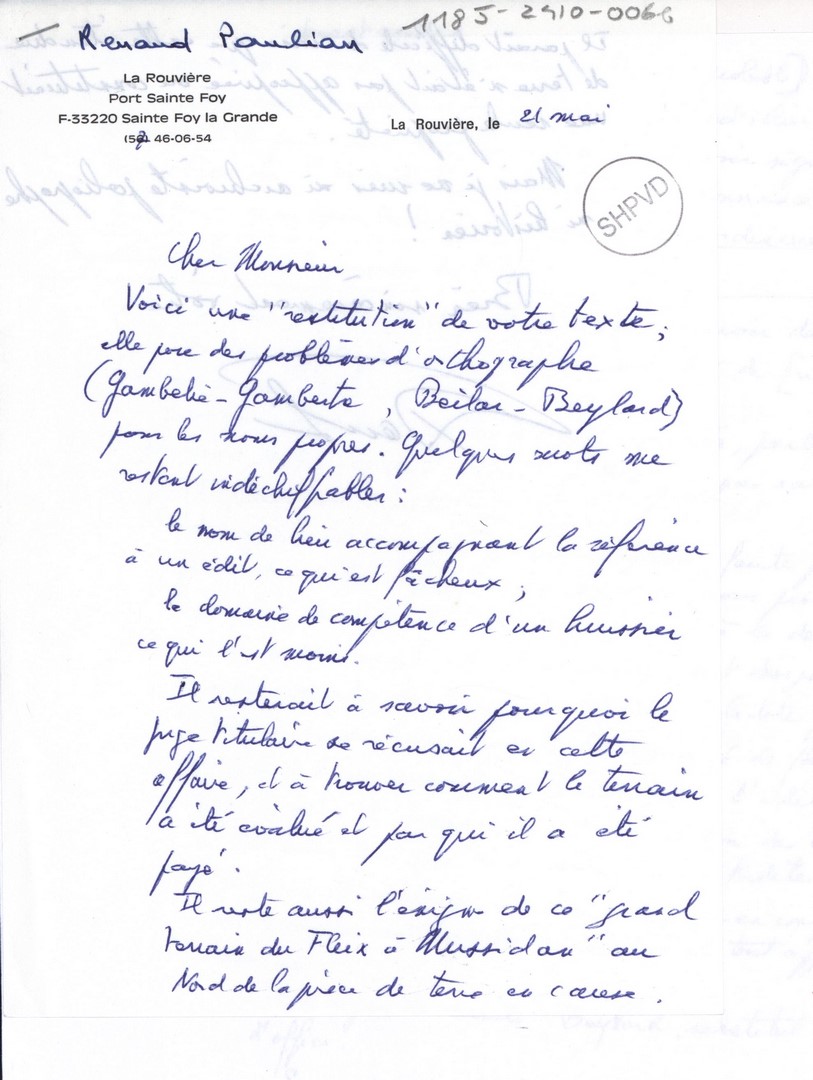 1185-2410-0066
Renaud Paulian
La Rouvière
Port Sainte Foy
F-33220 Sainte Foy la Grande
46-06-54
La Rouvière, le 21 mai
SHPVD
Cher Monsieur
Voici une "restitution" de votre texte ;
elle pose des problèmes d'orthographe
(Gambelie - Gamberta, Beilar - Beylard)
pour les noms propres. Quelques mots me
restent indéchiffrables :
le nom de lieu accompagnant la référence
à un édit, ce qui est fâcheux ;
le domaine de compétence d'un huissier
ce qui l'est moins.
Il resterait à savoir pourquoi le
juge titulaire se récusait en cette
affaire, et à trouver comment le terrain
a été évalué et par qui il a été
payé.
Il reste aussi l'énigme de ce "grand
terrain du Fleix à Mussidan" au
Nord de la pièce de terre en cause.